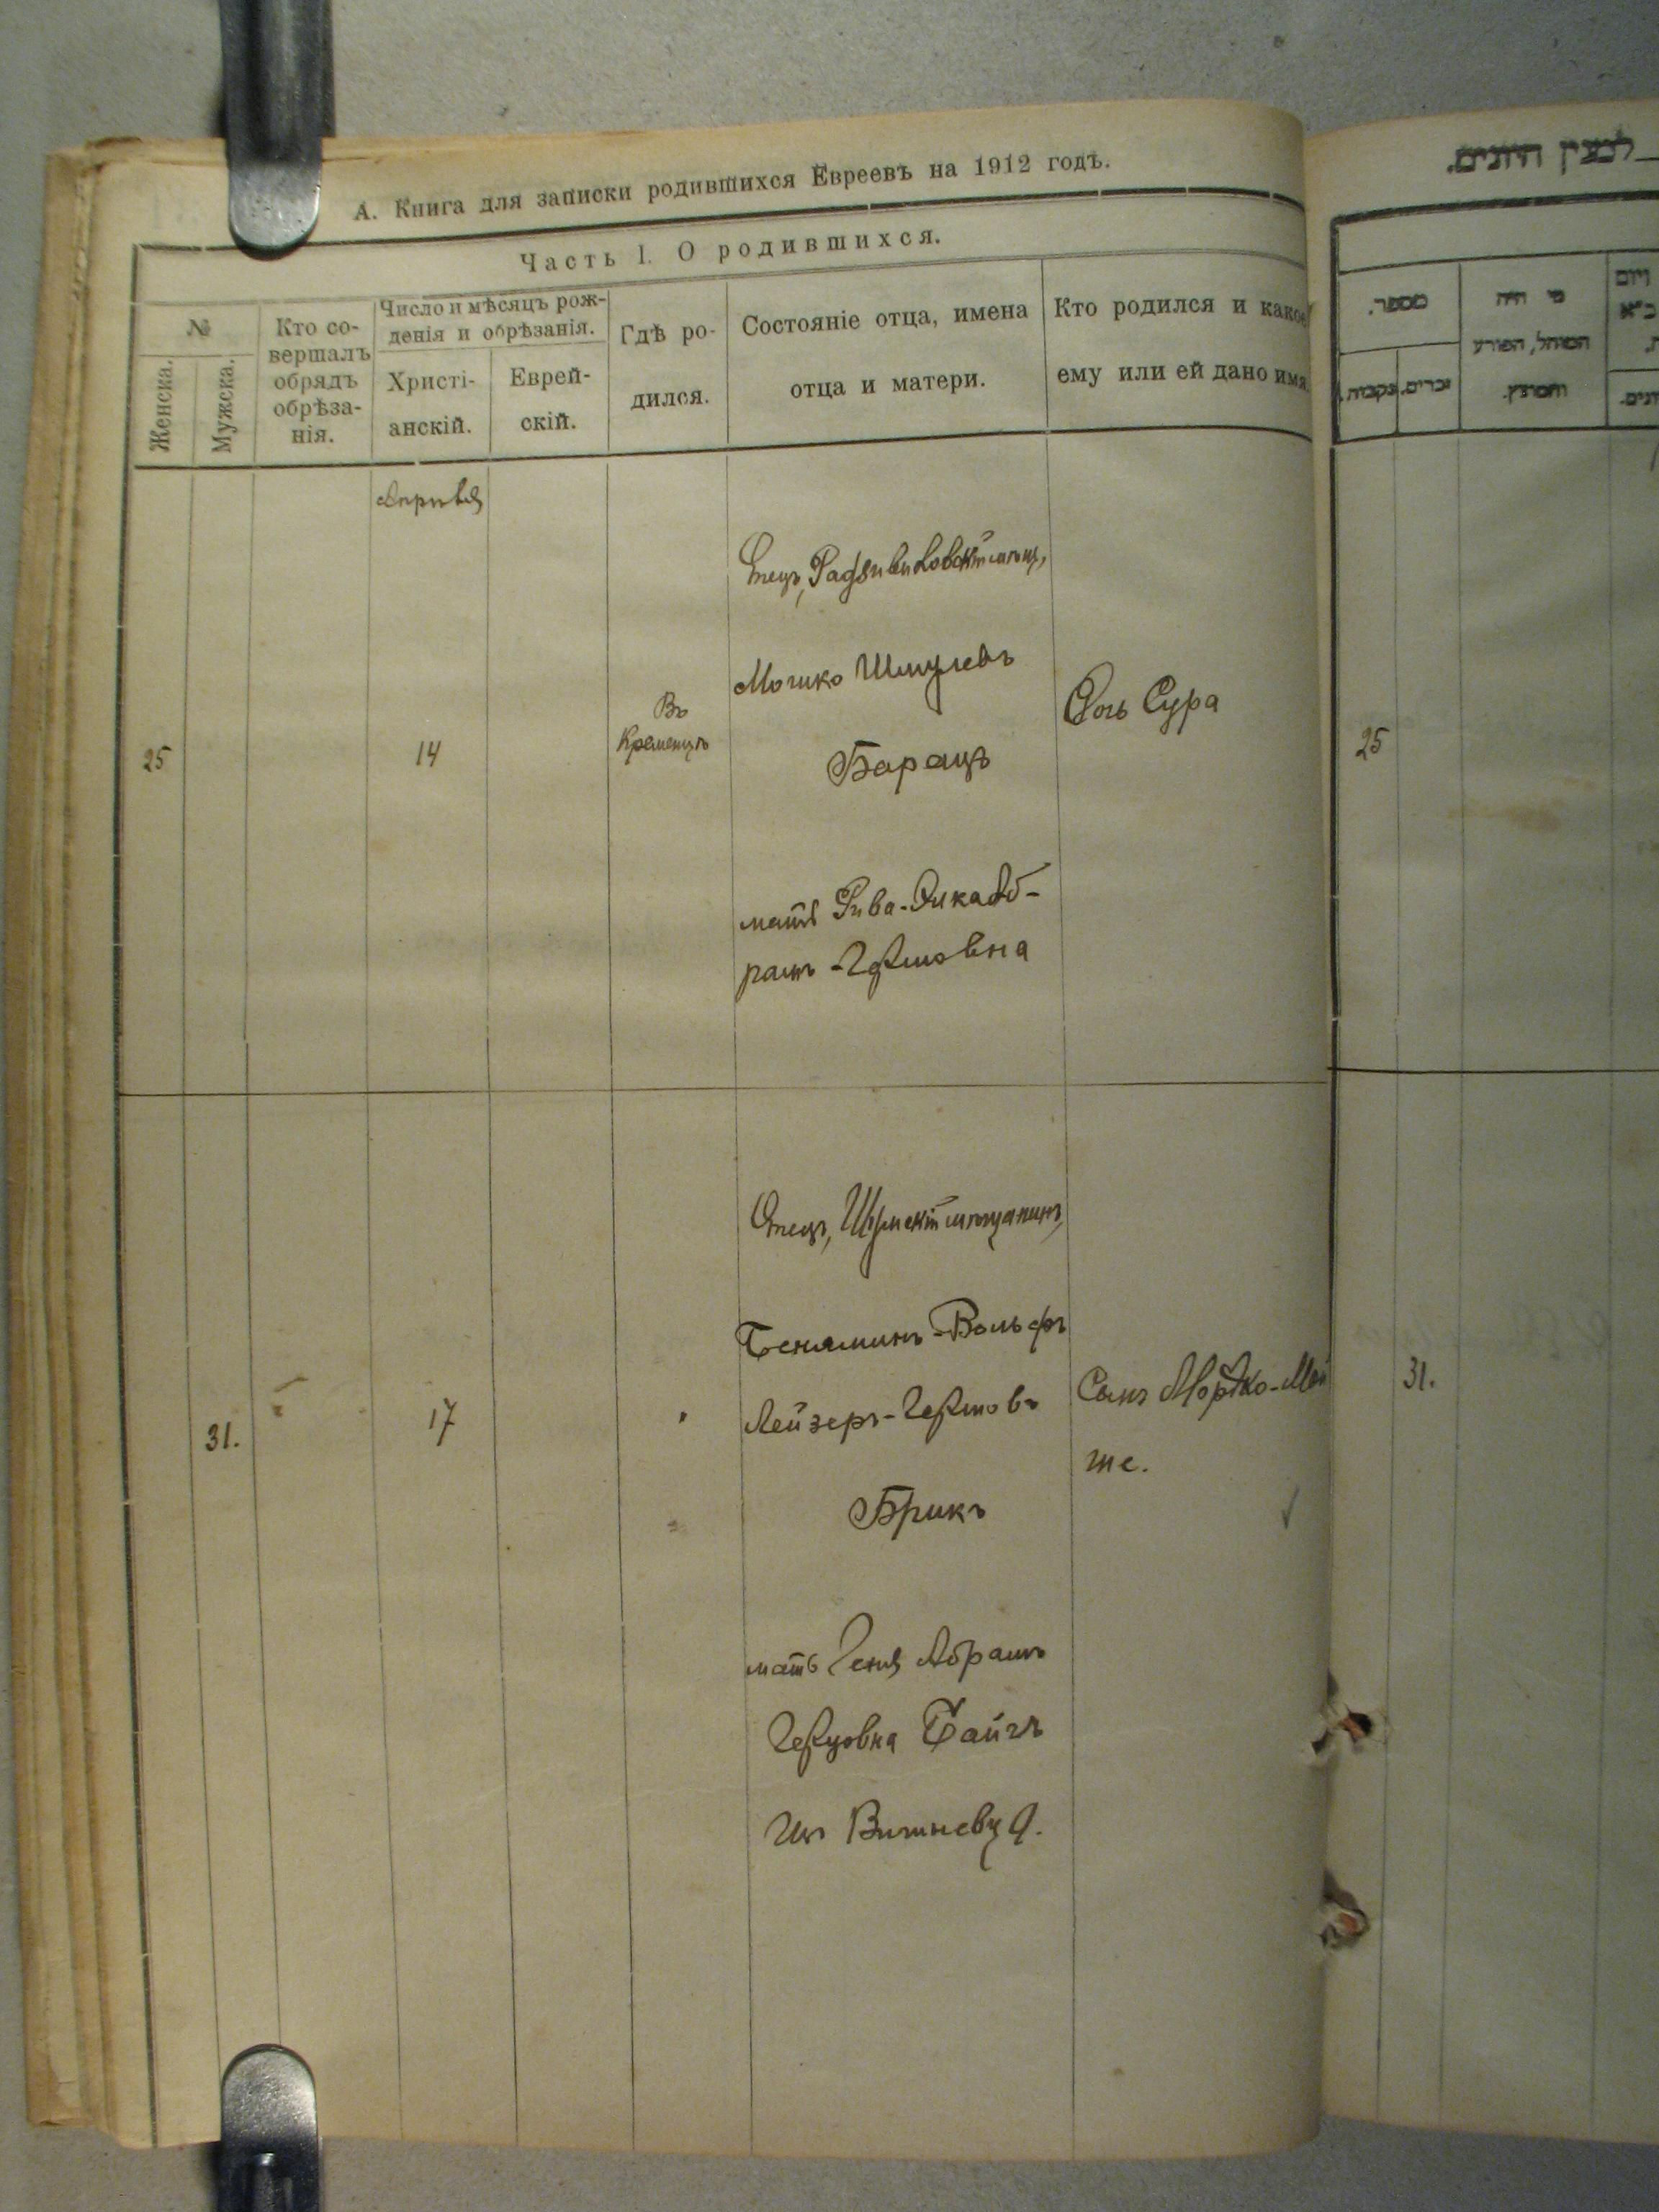 А. Книга для записки родившихся Евреевъ на 1912 годъ.
Часть I. О родившихся.
№
Женска.
Мужска.
Кто со-
вершалъ
обрядъ
обрѣза-
нія.
Число и мѣсяцъ рож-
денія и обрѣзанія.
Христі-
анскій.
Еврей-
скій.
Гдѣ ро-
дился.
Состояніе отца, имена
отца и матери.
Кто родился и какое
ему или ей дано имя.
Апрѣля
25
14
Въ
Кременцѣ
Отецъ, Радзивиловскій
Мошко Шмулевъ
Барацъ
мать Рива- Аб-
рамъ-Гершовна
Дочь Сура
31.
17
"
Отецъ, мѣщанинъ,
Беньяминъ-Вольфъ
Лейзеръ-Гершовъ
Брикъ
мать Геня Абрамъ
Герцовна
Изъ Вишневца.
Сынъ Мордко-Мой
ше.
לבנין היונים.
מספר.
זכרים.
נקבות.
מי היה
המוהל, הפורע
והמוצץ.
ויום
25
31.